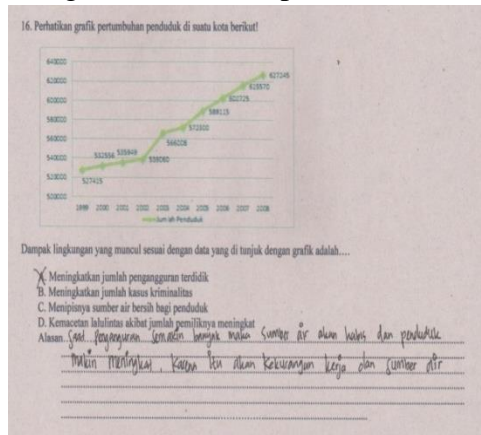 16. Perhatikan grafik pertumbuhan penduduk di suatu kota berikut!
640000
620000
600000
580000
560000
540000
520000
500000
527415
532556
535849
539080
566028
572300
589115
602725
615570
627245
1999 2000 2001 2002 2003 2004 2005 2006 2007 2008
Jumlah Penduduk
Dampak lingkungan yang muncul sesuai dengan data yang di tunjuk dengan grafik adalah....
A. Meningkatkan jumlah pengangguran terdidik
B. Meningkatkan jumlah kasus kriminalitas
C. Menipisnya sumber air bersih bagi penduduk
D. Kemacetan lalulintas akibat jumlah pemiliknya meningkat
Alasan Saat Pengangguran Semakin banyak maka Sumber air akan habis dan penduduk
makin meningkat, karena itu akan kekurangan kerja dan sumber air